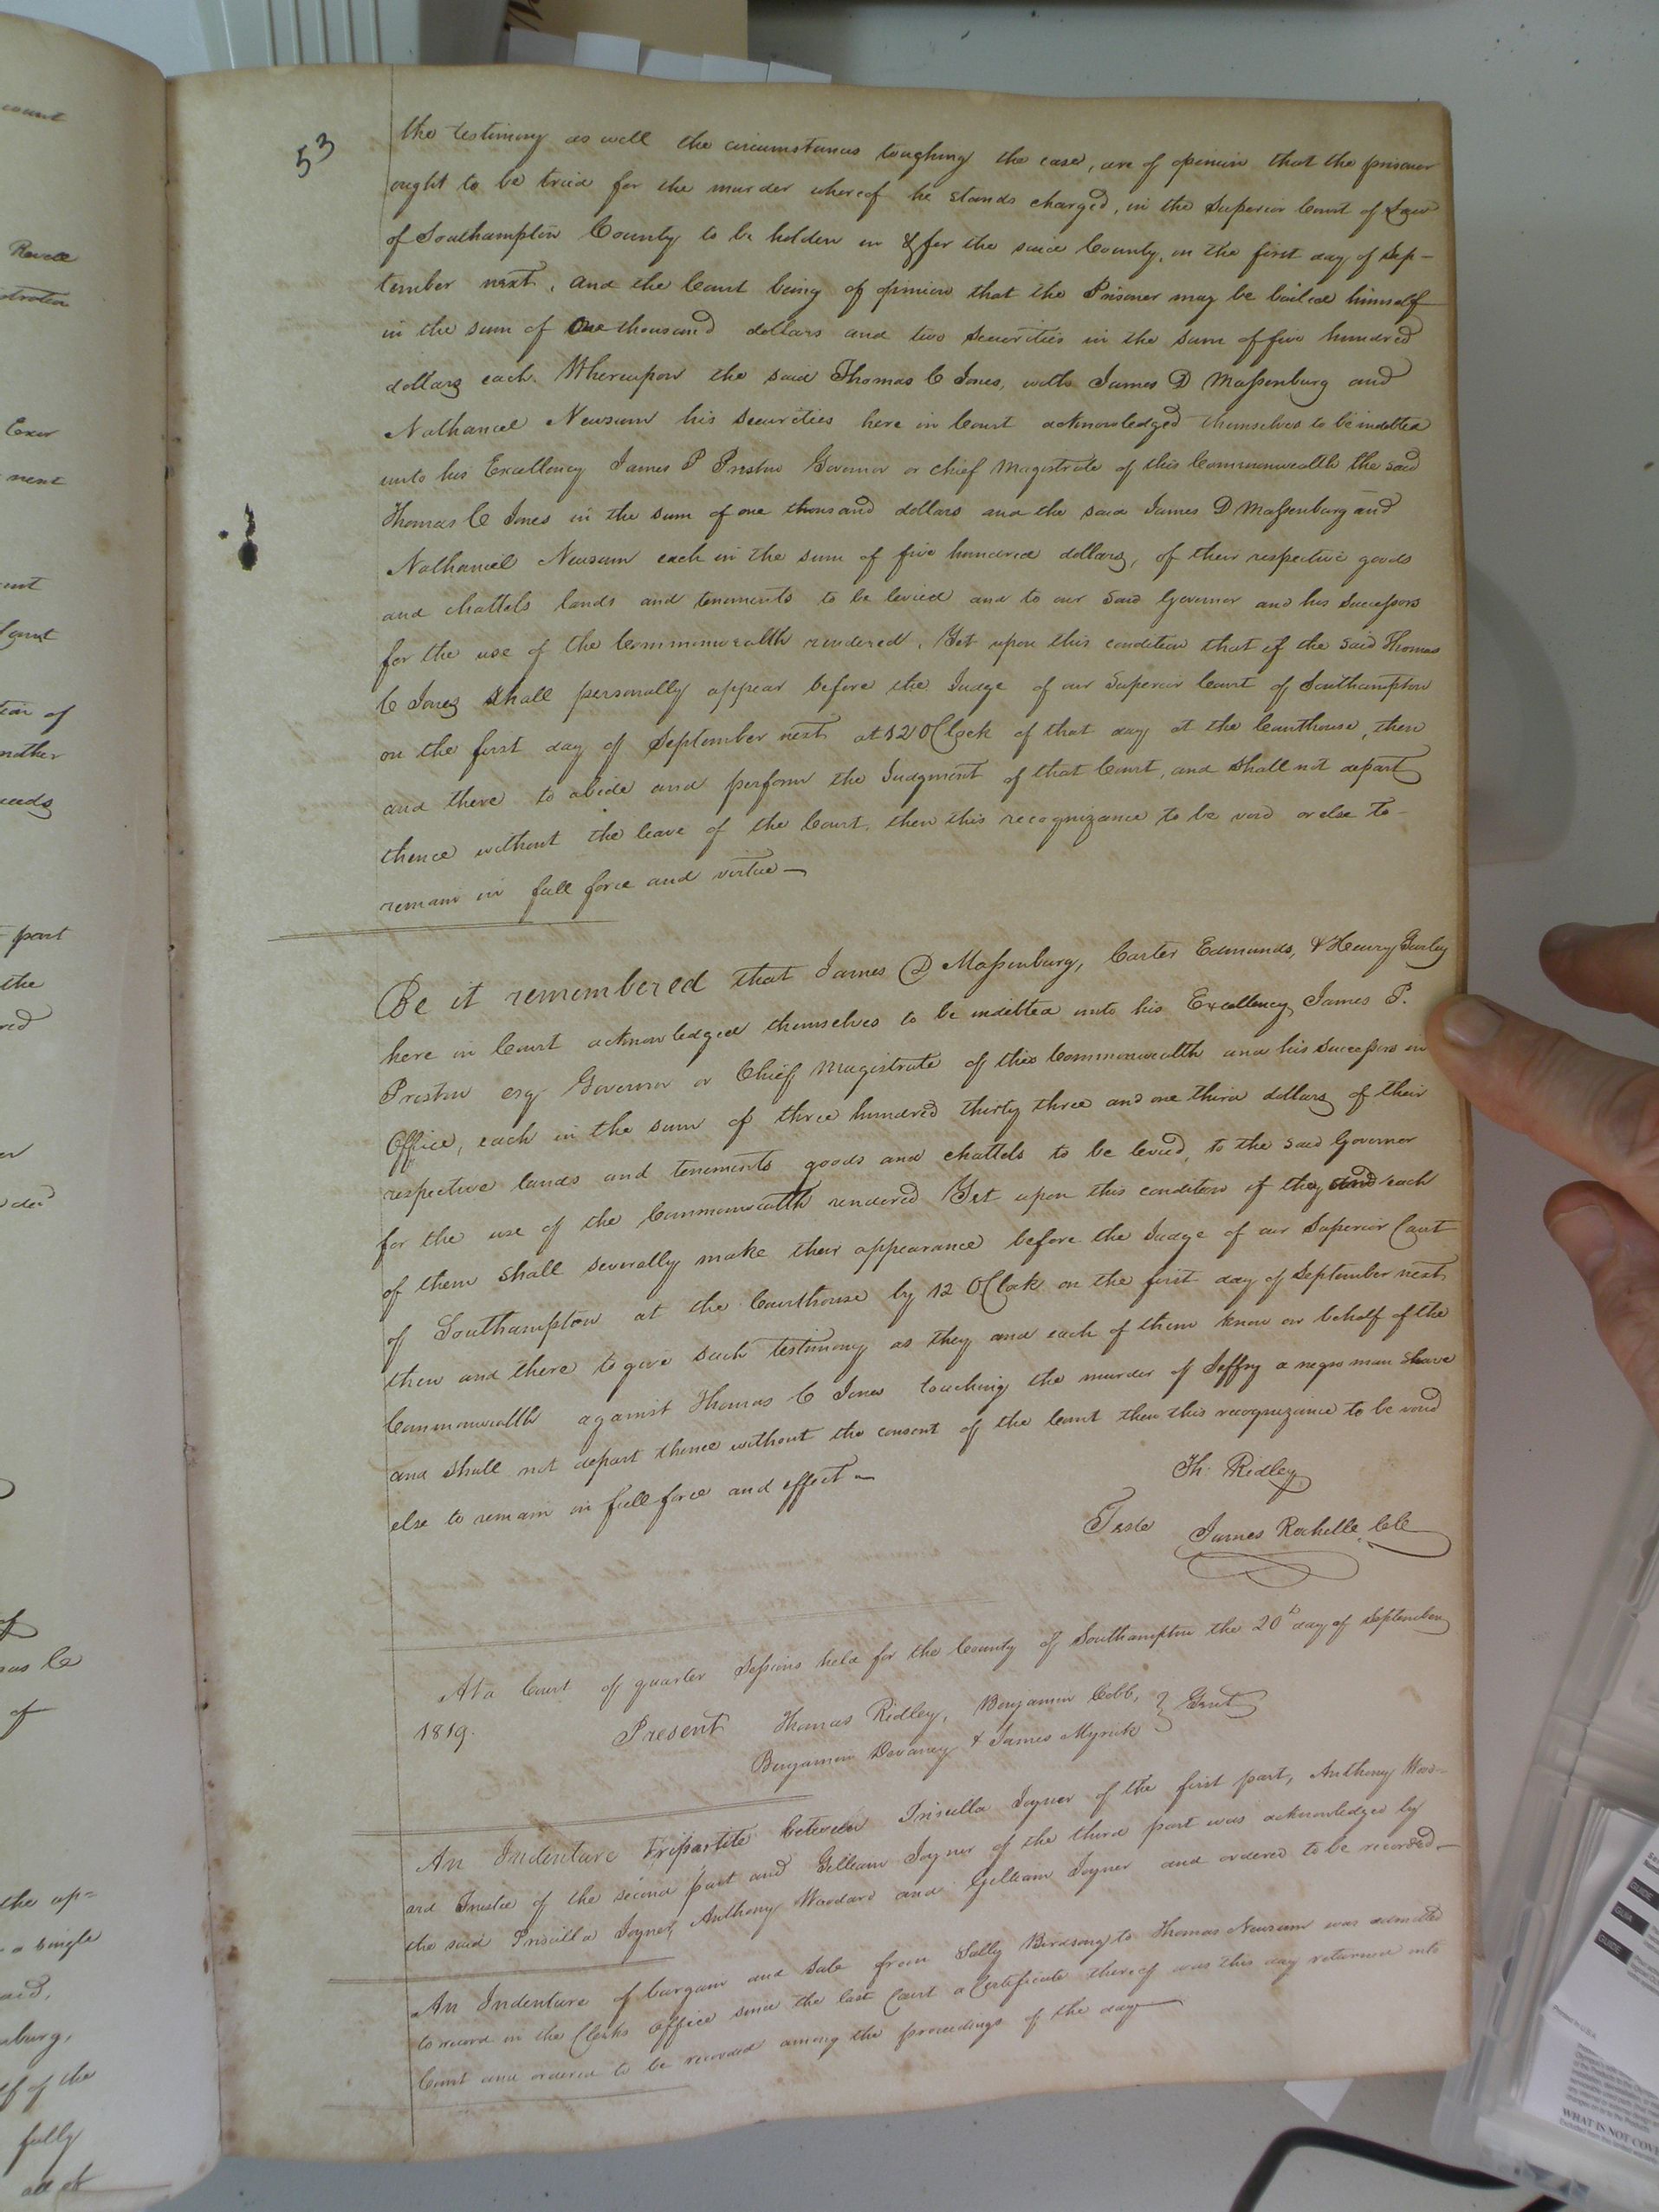 53
the testimony as well the circumstances toughing the case, are of opinion that the prisoner
ought to be tried for the murder whereof he stands charged, in the Superior Court of Law
of Southampton County to be holden in & for the said County, on the first day of Sep-
tember next, and the Court being of opinion that the Prisoner may be bailed himself
in the sum of One thousand dollars and two Securities in the sum of five hundred
dollars each. Whereupon the said Thomas C Jones, with James D Massenburg and
Nathaniel Newsum his securities here in Court acknowledged themselves to be indebted
unto his Excellency James P Preston Governor or chief Magistrate of this Commonwealth the said
Thomas C Jones in the sum of one thousand dollars and the said James D Massenburg and
Nathaniel Newsum each in the sum of five hundred dollars, of their respective goods
and chattels lands and tenements to be levied and to our said Governor and his Successors
for the use of the Commonwealth rendered. Yet upon this condition that if the said Thomas
C Jones shall personally appear before the Judge of our Superior Court of Southampton
on the first day of September next at 12 OClock of that day at the Courthouse, then
and there to abide and perform the Judgment of that Court, and shall not depart
thence without the leave of the Court, then this recognizance to be void or else to-
remain in full force and virtue—
Be it remembered that James D Massenburg, Carter Edmunds, & Henry Gurley
here in Court acknowledged themselves to be indebted unto his Excellency James P.
Preston esq Governor or Chief Magistrate of this Commonwealth and his successors in
Office, each in the sum of three hundred thirty three and one third dollars of their
respective lands and tenements goods and chattels to be levied, to the said Governor
for the use of the Commonwealth rendered Yet upon this condition if they and each
of them shall severally make their appearance before the Judge of our Superior Court
of Southampton at the Courthouse by 12 OClock on the first day of September next
then and there to give such testimony as they and each of them know on behalf of the
Commonwealth against Thomas C Jones touching the murder of Jeffry a negro man slave
and shall not depart thence without the consent of the Court then this recognizance to be void
else to remain in full force and effect—
Th: Ridley
Teste James Rochelle CC
At a Court of quarter Sessions held for the County of Southampton the 20th day of September
1819.
Present Thomas Ridley, Benjamin Cobb,
Benjamin Devaney & James Myrick } Gent
An Indenture Tripartite between Priscilla Joyner of the first part, Anthony Wood-
ard Trustee of the second part and Gilliam Joyner of the third part was acknowledged by
the said Priscilla Joyner, Anthony Woodard and Gilliam Joyner and ordered to be recorded—
An Indenture of bargain and sale from Sally Birdsong to Thomas Newsum was admitted
to record in the Clerks office since the last Court a Certificate thereof was this day returned into
Court and ordered to be recorded among the proceedings of the day—